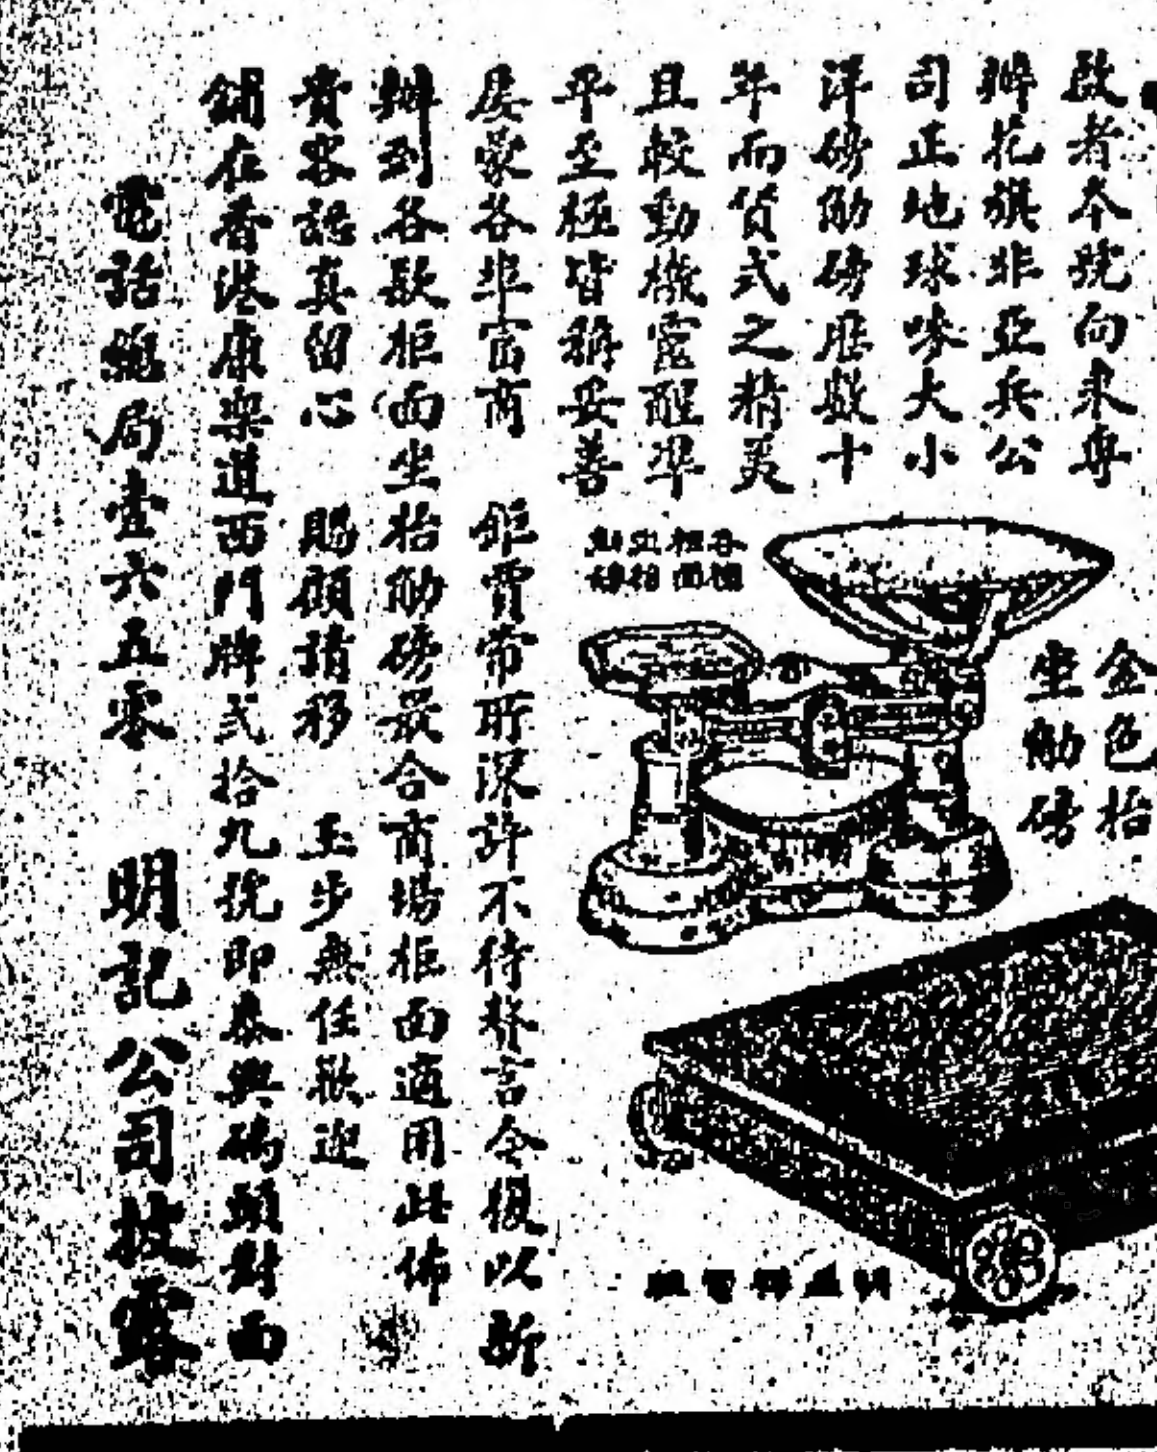 啟者本號向來專
辦花旗非亞兵公
司正地球嘜大小
洋磅舳磅歷數十
年而貨式之精美
且較動機靈醒準
平至極皆稱妥善
屢蒙各埠富商 鉅賈常所深許不待贅言今復以新
辦到各款柜面坐枱舳磅最合商場柜面適用此佈
貴客認真留心 賜顧請移 玉步無任歡迎
鋪在香港康樂道西門牌弍拾九號即泰興碼頭對面
電話總局壹六五零 明記公司披露
金色枱
坐舳磅